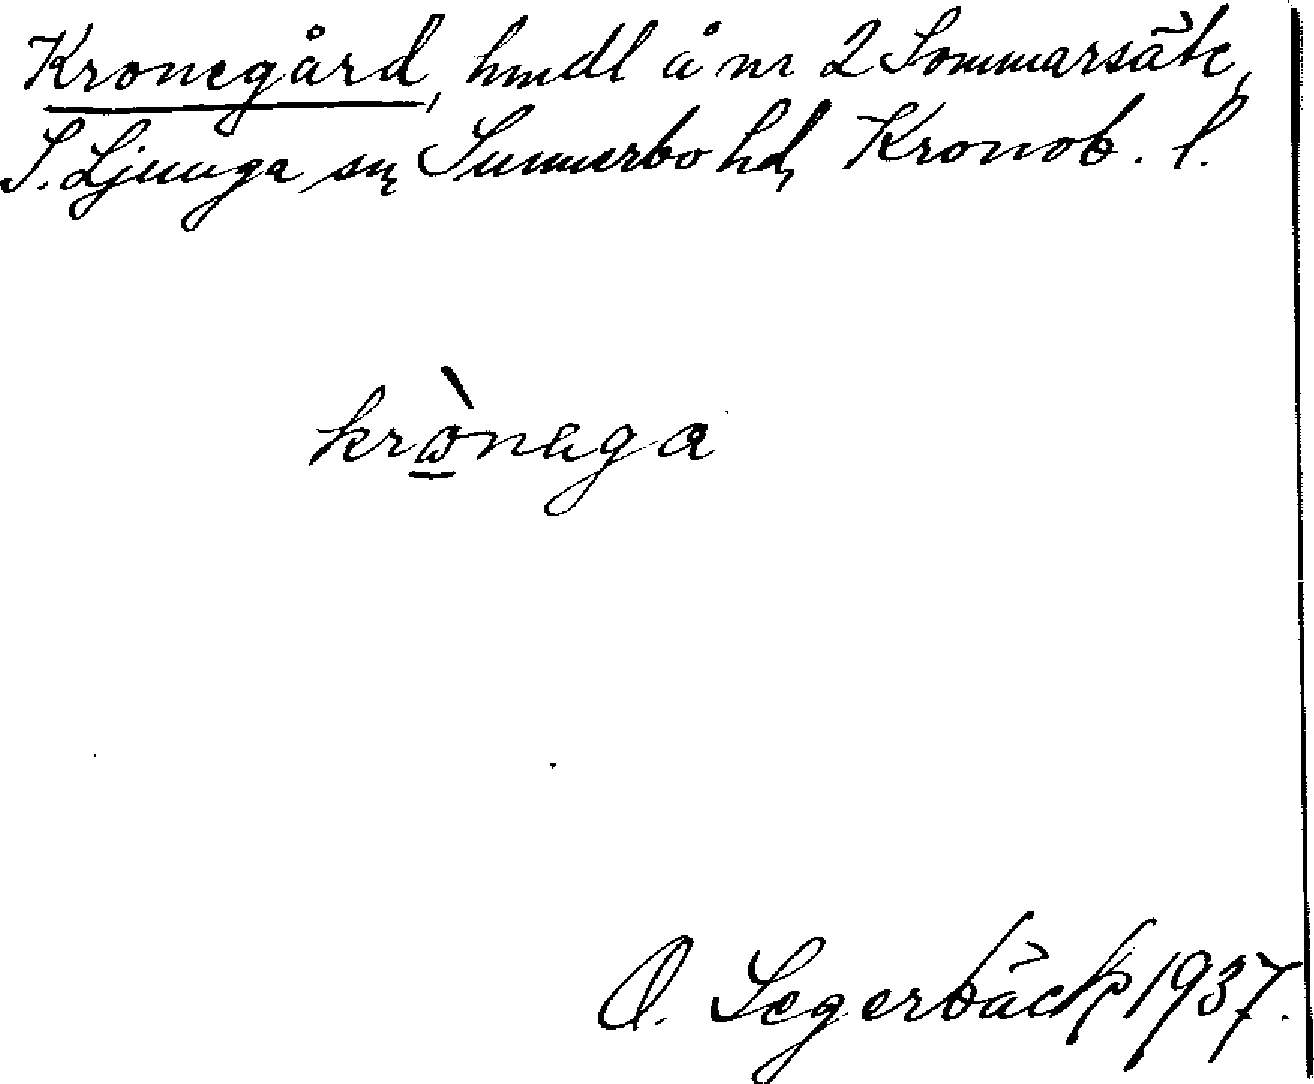 Kronegård, hmdl å nr 2 Sommarsäte,
S. Ljunga sn, Sunnerbo hd, Kronob. l.
krònaga
O. Segerbäck 1937.